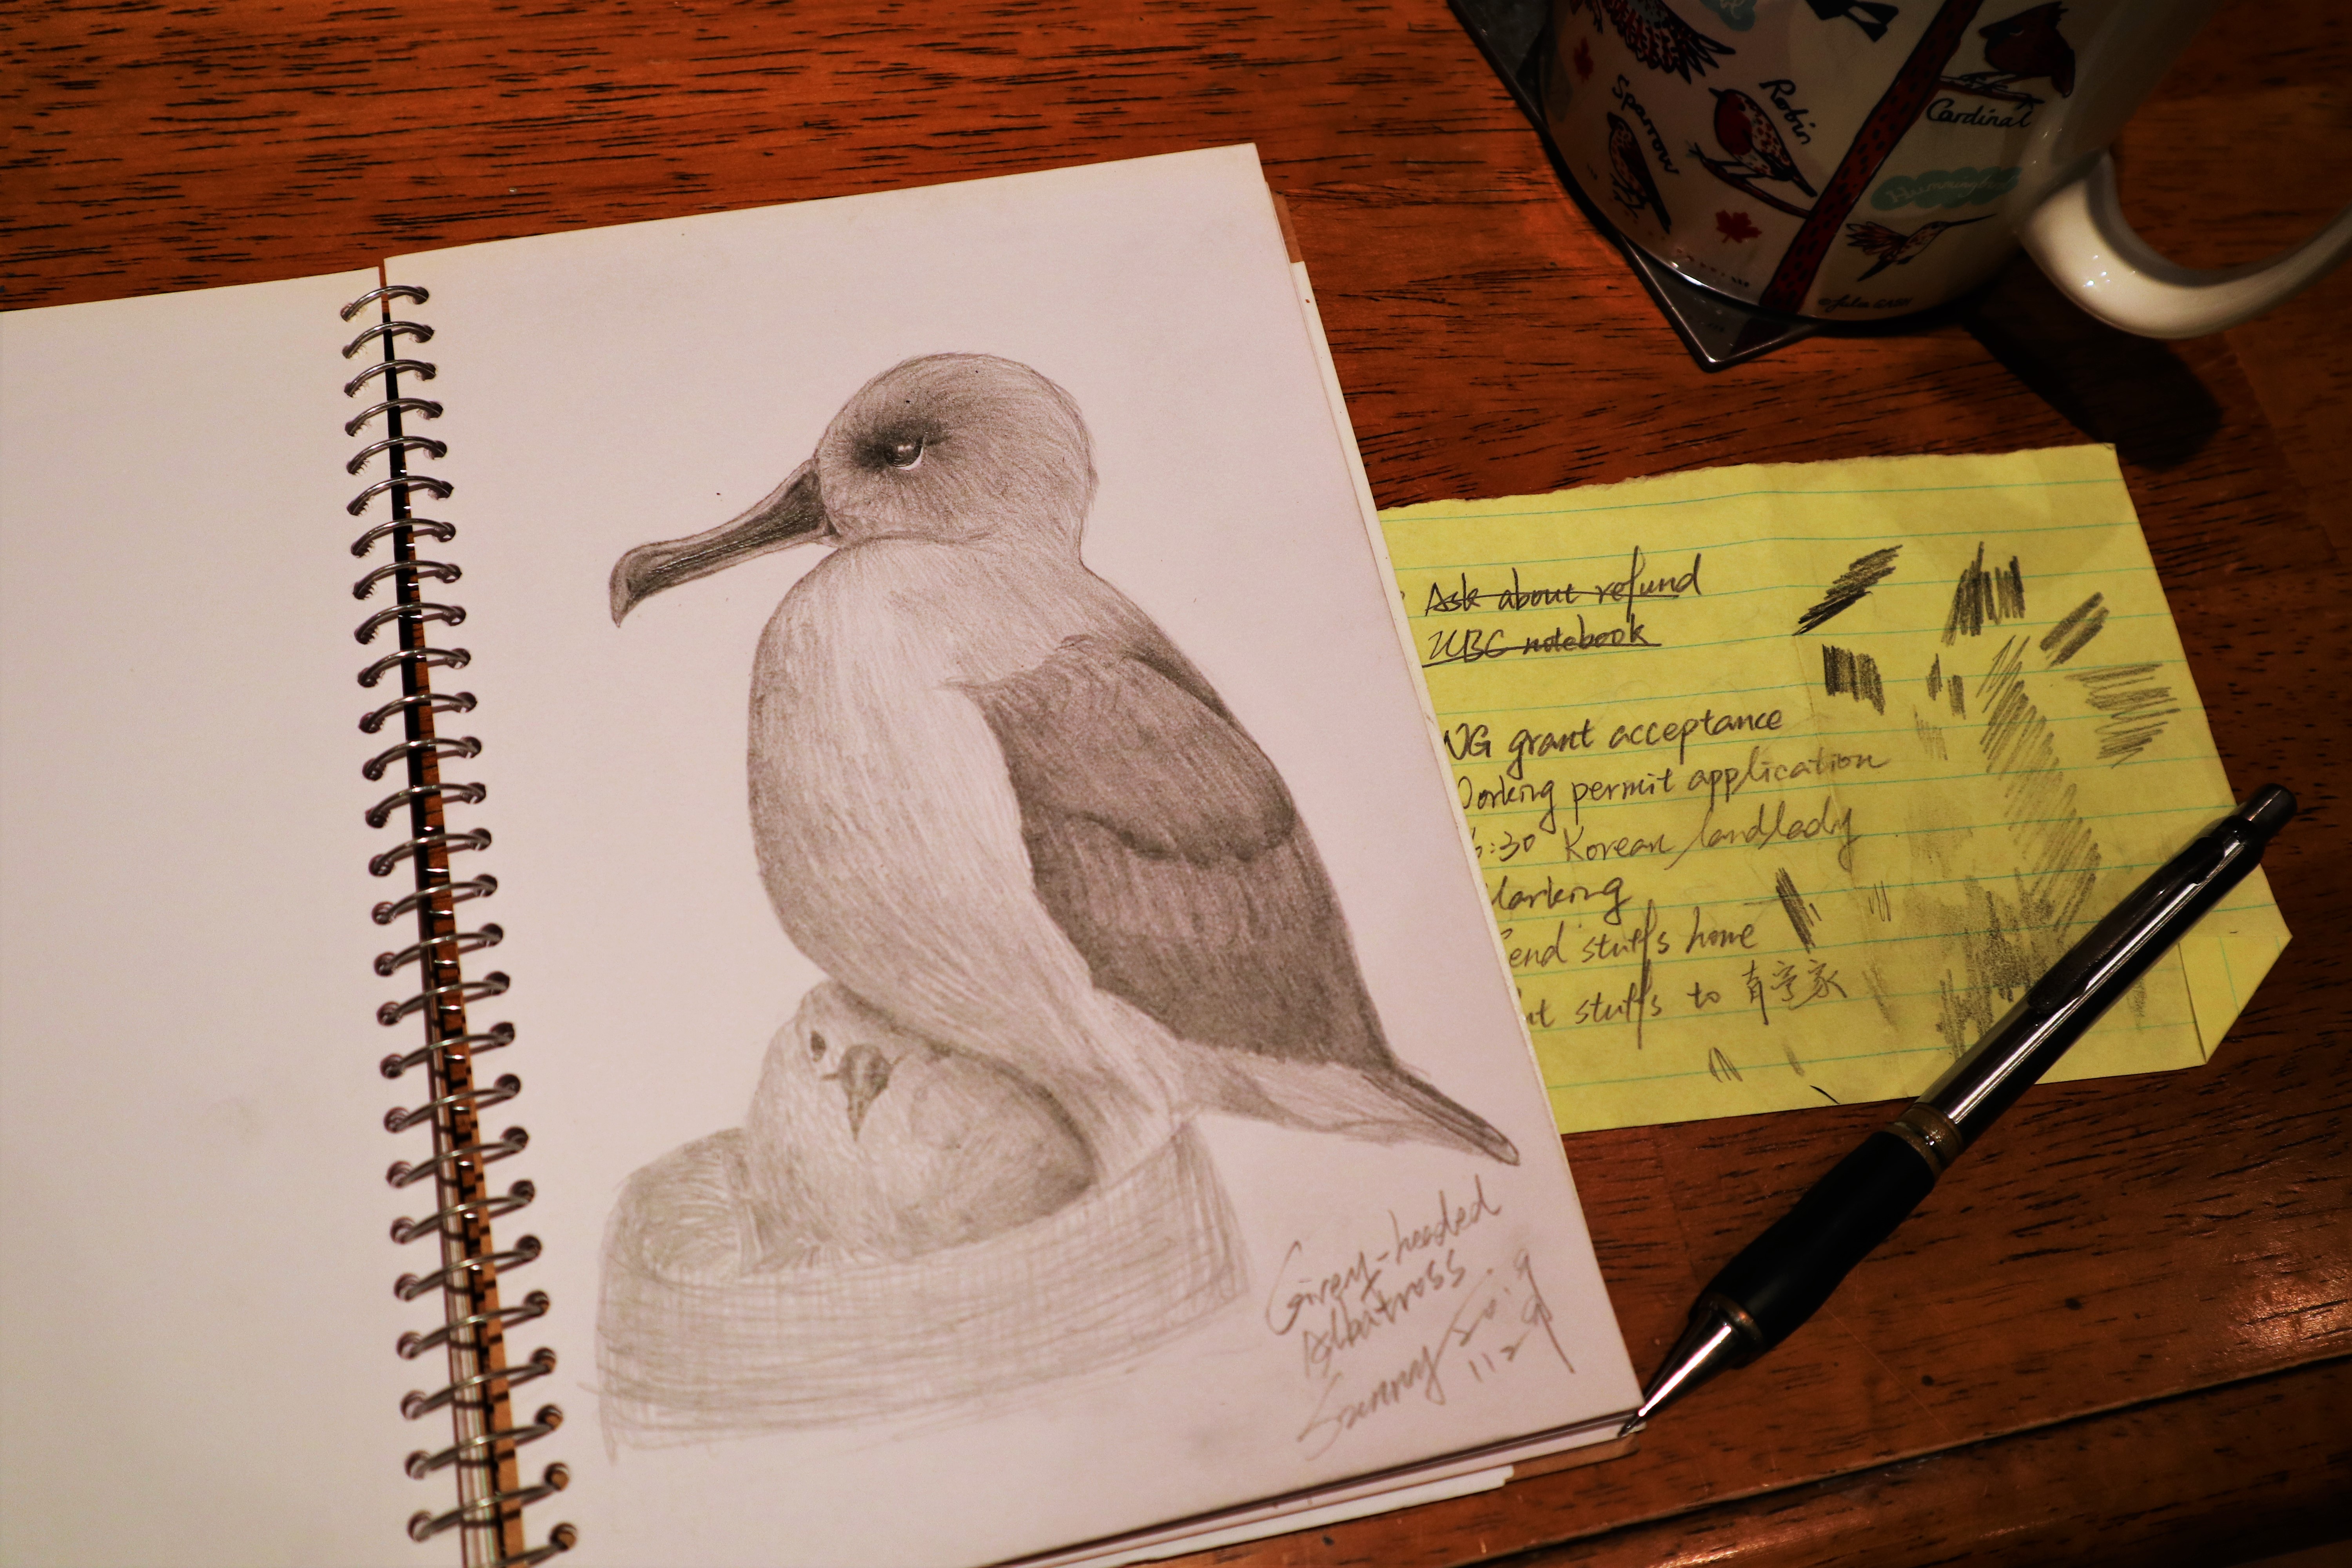 Sparrow
Robin
Cardinal
Hummingbird
Ask about refund
UBC notebook
NG grant acceptance
orking permit application
:30 Korean landlady
arking
end stuffs home
stuffs to 青亨家
Grey-headed
Albatross
Sunny 2019
11.29